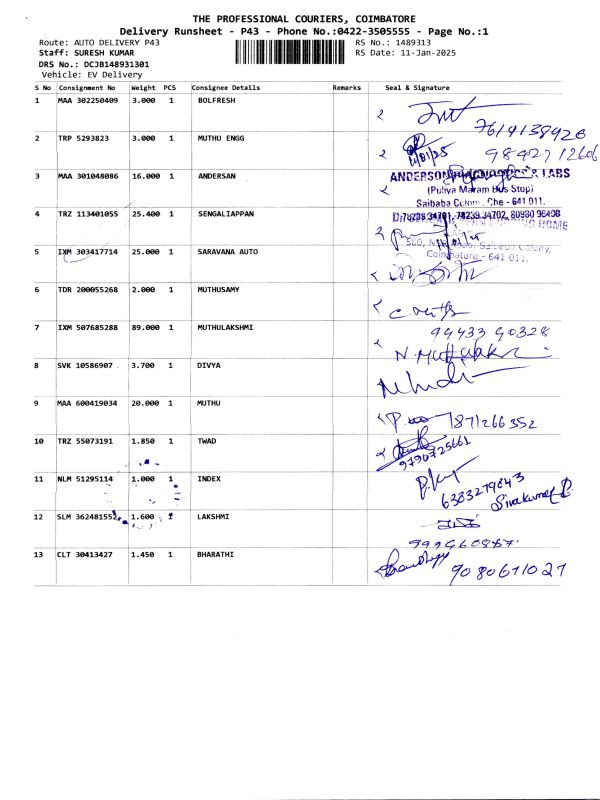 THE PROFESSIONAL COURIERS, COIMBATORE
Delivery Runsheet - P43 - Phone No.:0422-3505555 - Page No.:1
Route: AUTO DELIVERY P43 RS No.: 1489313
Staff: SURESH KUMAR RS Date: 11-Jan-2025
DRS No.: DCJB148931301
Vehicle: EV Delivery
S No Consignment No Weight PCS Consignee Details Remarks Seal & Signature
1 MAA 302250409 3.000 1 BOLFRESH
7614138426
2 TRP 5293823 3.000 1 MUTHU ENGG
9842712606
3 MAA 301048086 16.000 1 ANDERSAN
& LABS
(Puliya Maram Bus Stop)
Saibaba Colony, Cbe - 641 011.
4 TRZ 113401055 25.400 1 SENGALIAPPAN
78239 34702, 80980 98408
Coimbatore - 641 011.
5 IXM 303417714 25.000 1 SARAVANA AUTO
6 TDR 200055268 2.000 1 MUTHUSAMY
7 IXM 507685288 89.000 1 MUTHULAKSHMI
94433 90328
8 SVK 10586907 3.700 1 DIVYA
9 MAA 600419034 20.000 1 MUTHU
7871266352
10 TRZ 55073191 1.850 1 TWAD
9790725661
11 NLM 51295114 1.000 1 INDEX
6383279843
Sivakumar
12 SLM 362481552 1.600 1 LAKSHMI
13 CLT 30413427 1.450 1 BHARATHI
9080671027